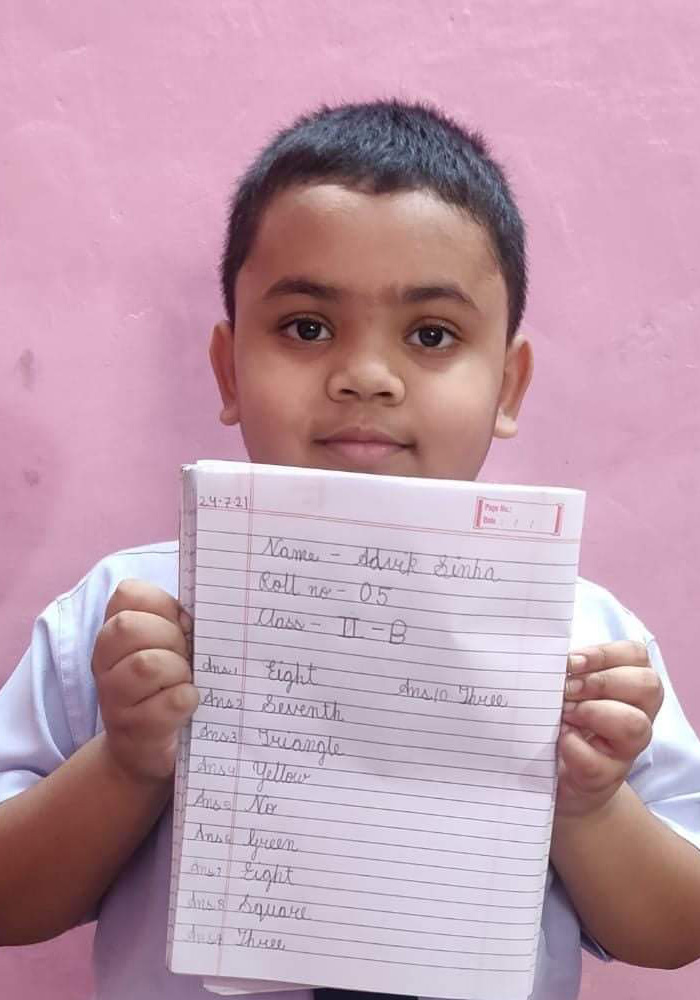 24.7.21
Page No.:
Date / /
Name - Advik Sinha
Roll no - 05
Class - II - B
Ans1 Eight Ans10 Three
Ans2 Seventh
Ans3 Triangle
Ans4 Yellow
Ans5 No
Ans6 Green
Ans7 Eight
Ans8 Square
Ans9 Three